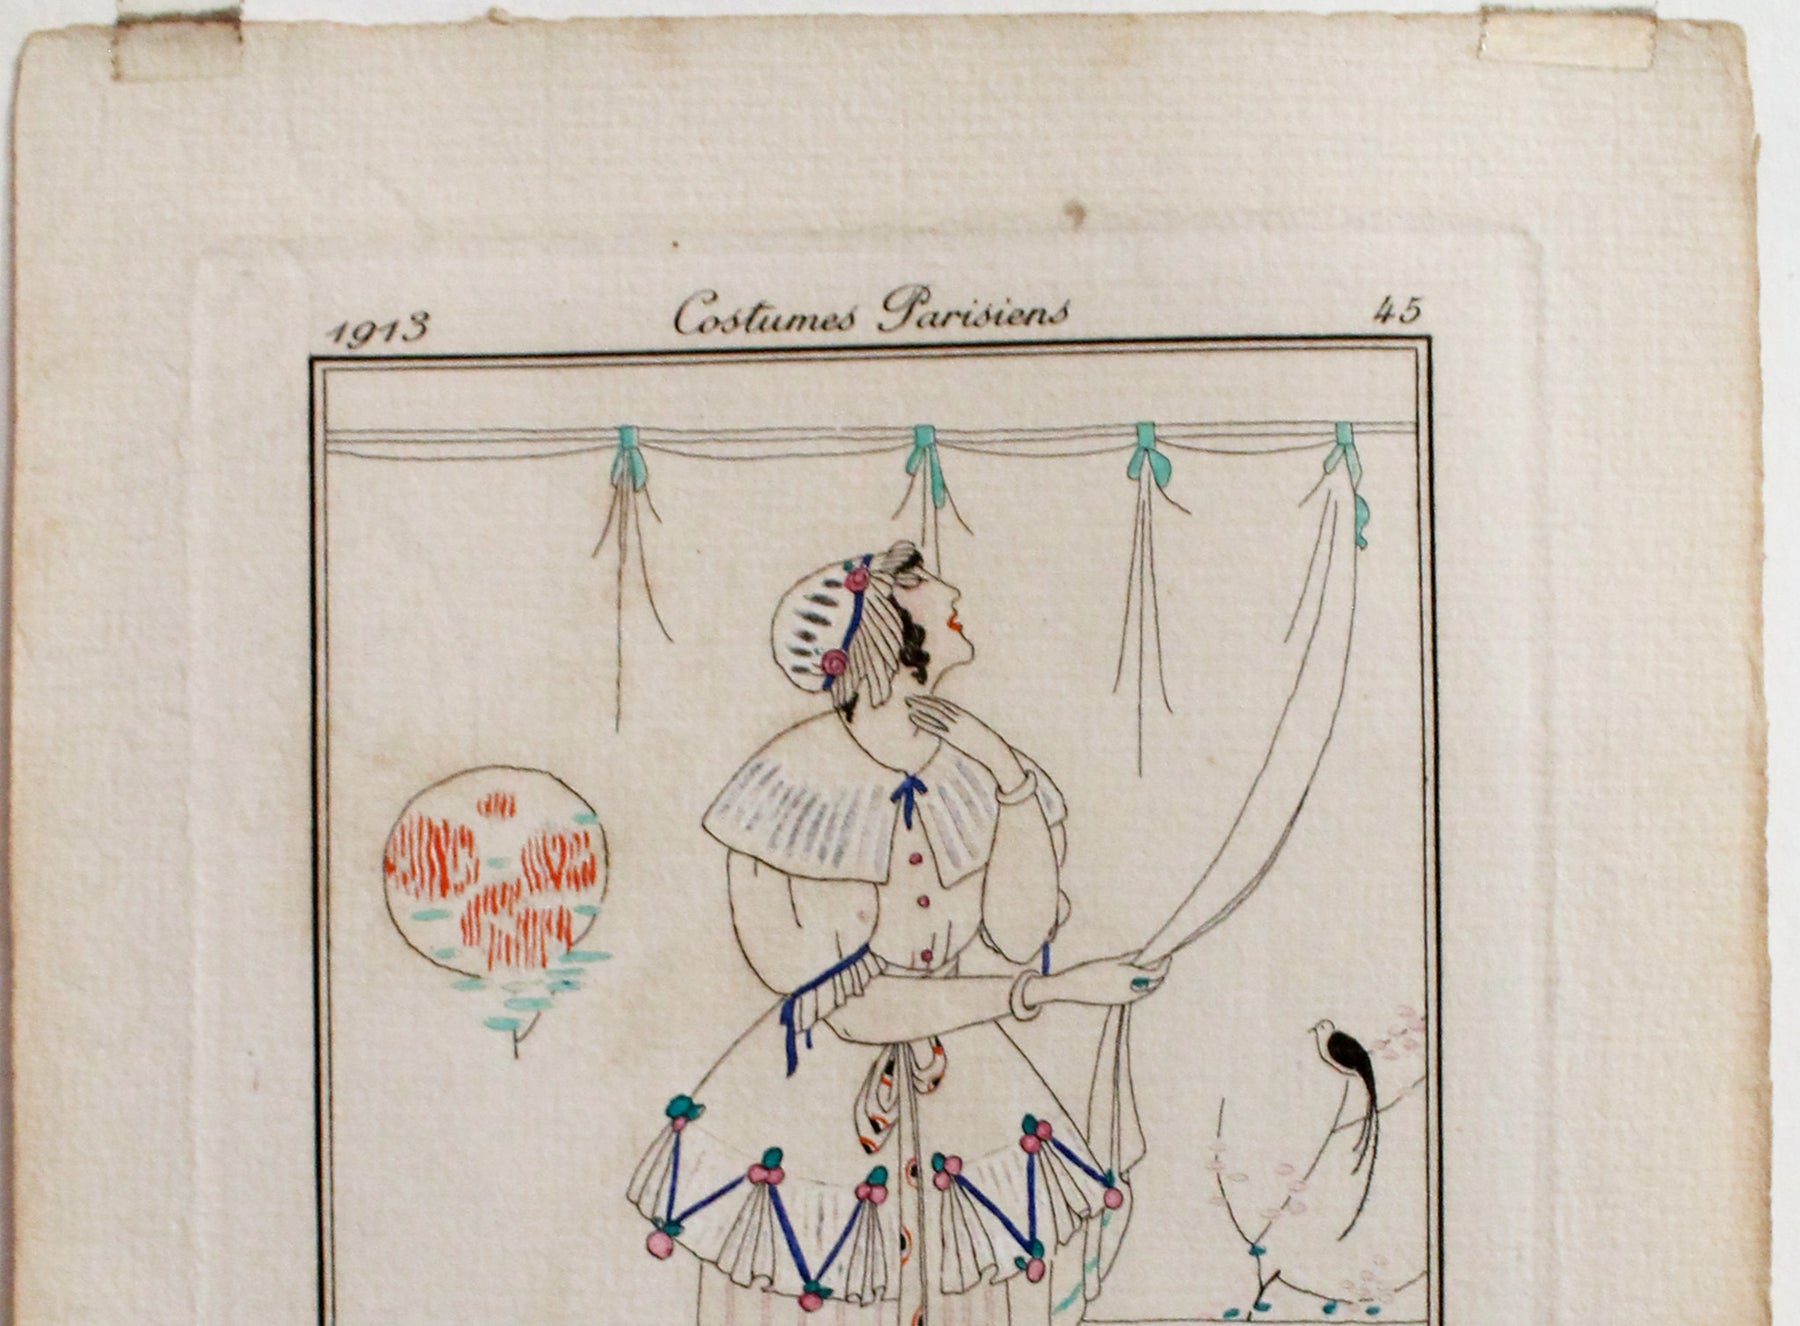 1913 Costumes Parisiens 45